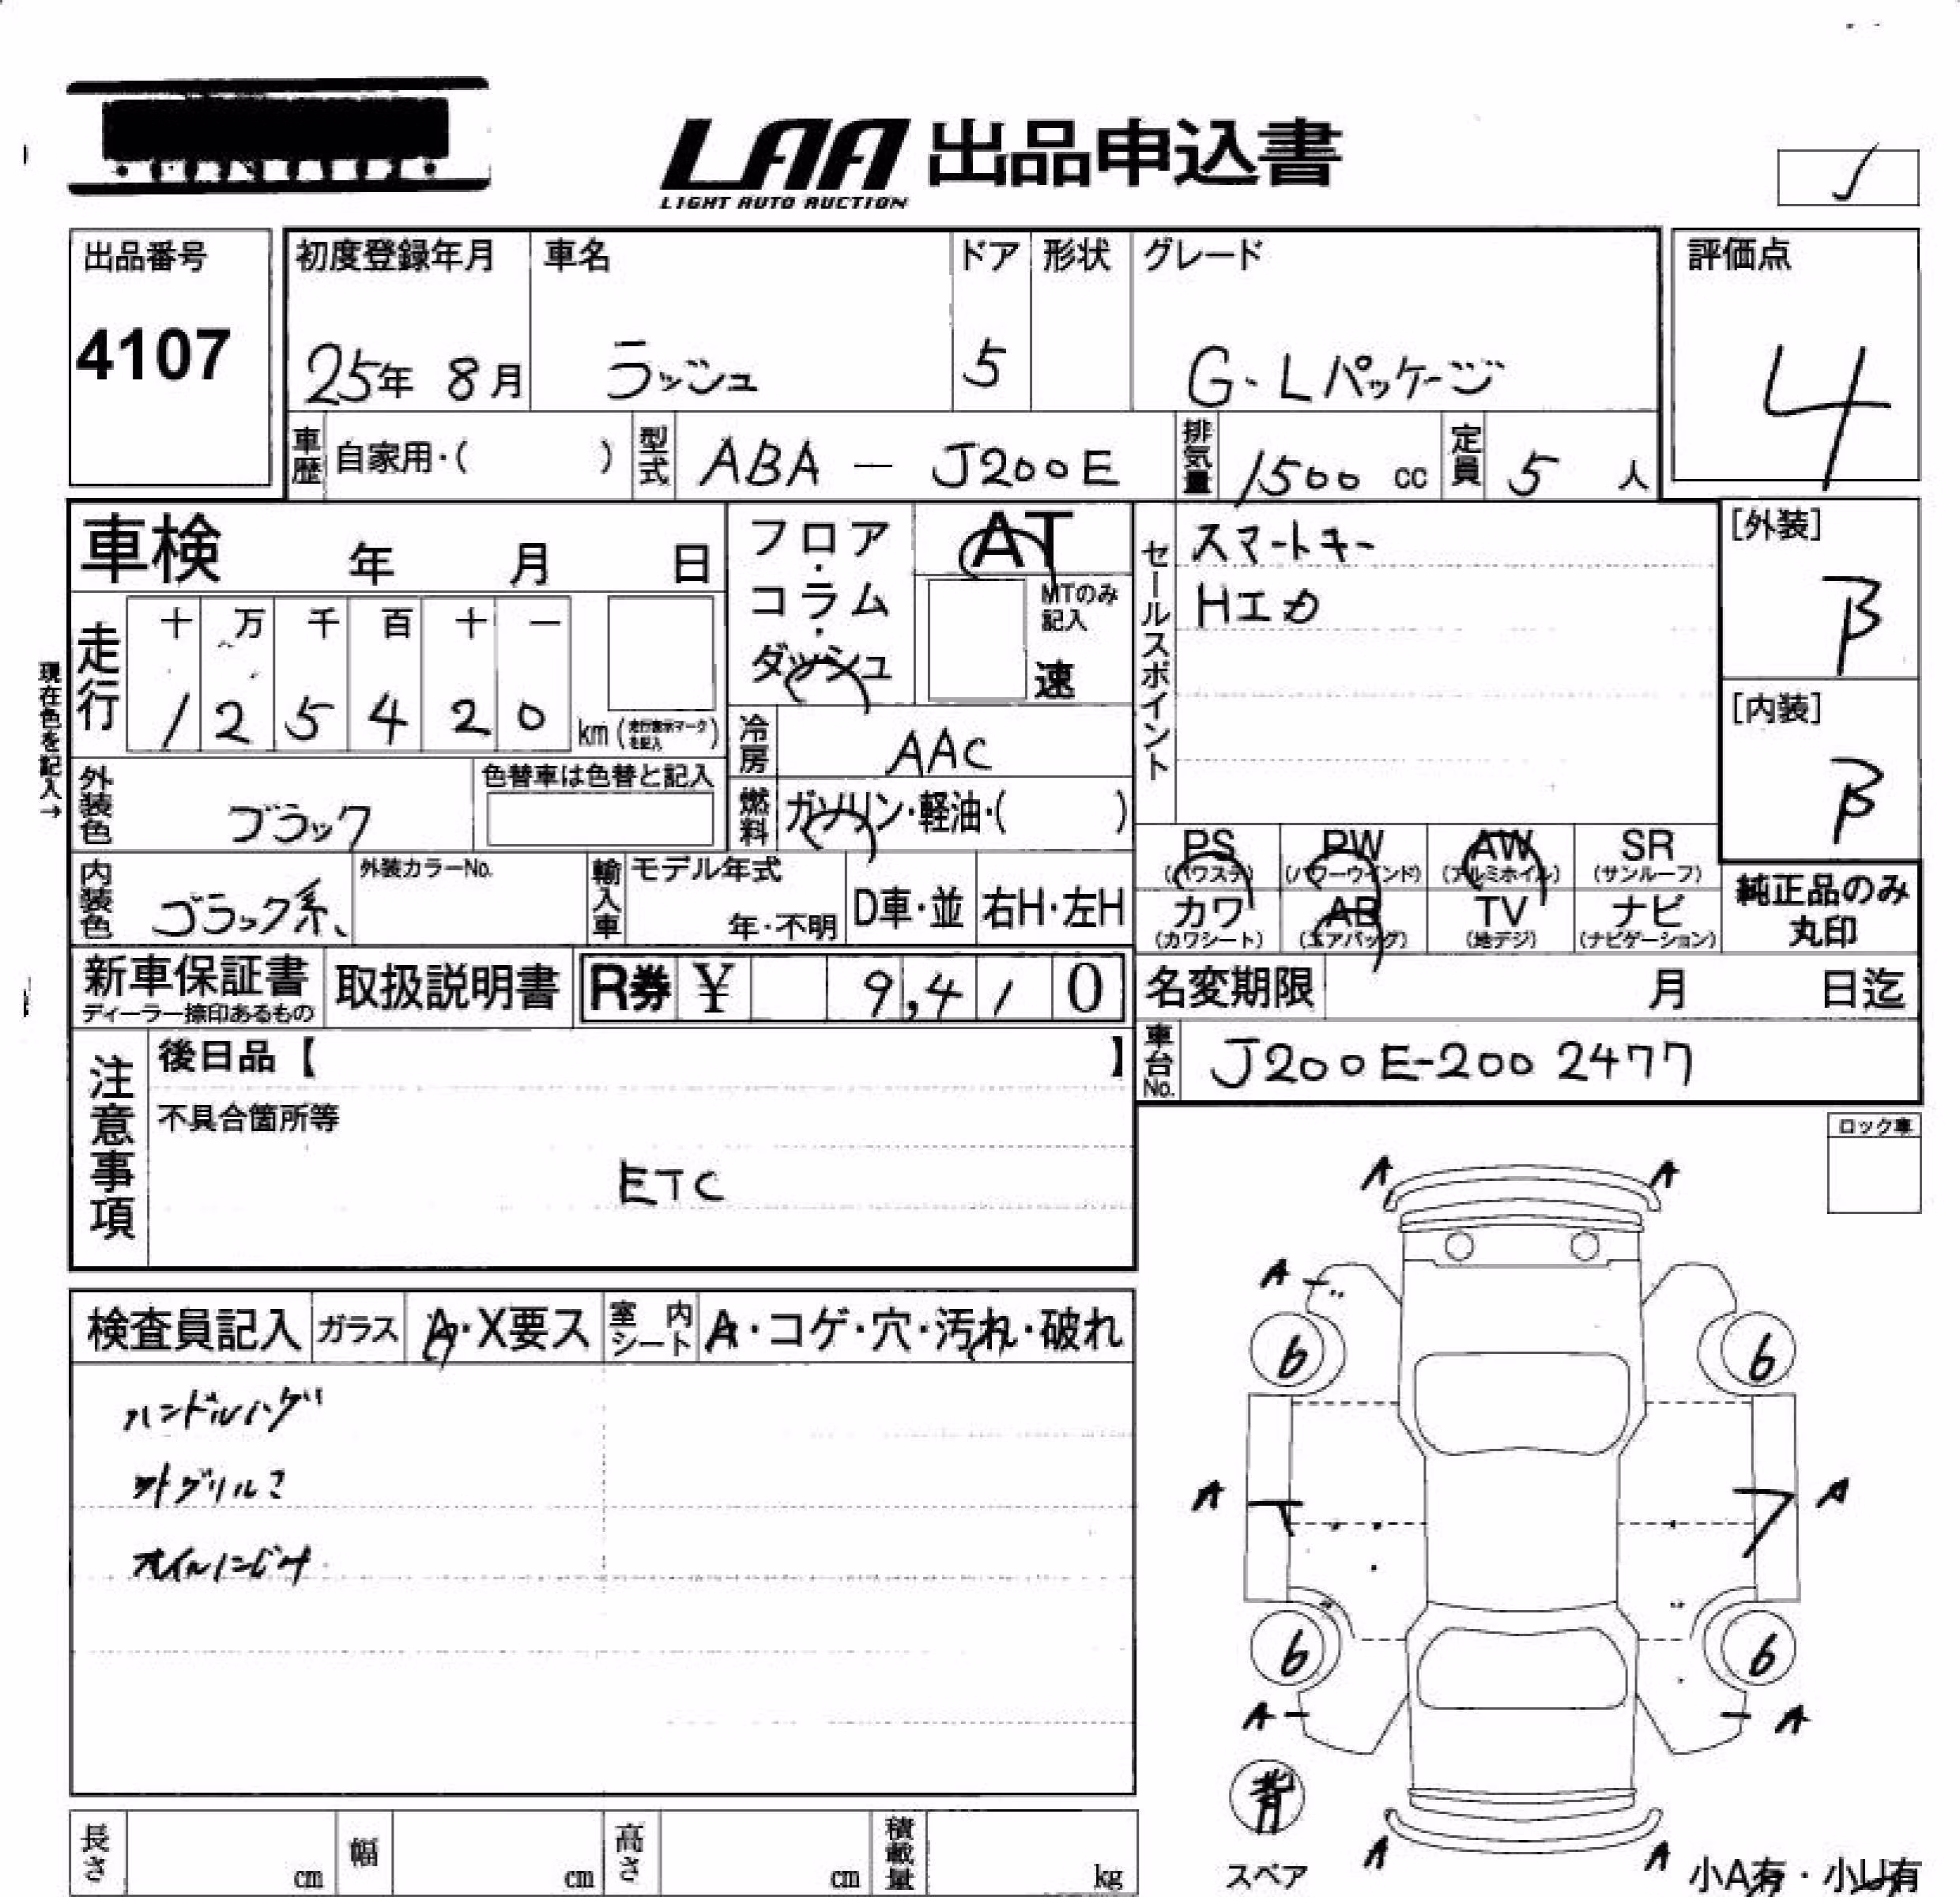 LAA 出品申込書
LIGHT AUTO AUCTION
出品番号
4107
初度登録年月 車名 ドア 形状 グレード
25年 8月 ラッシュ 5 G・Lパッケージ
評価点
4
車歴 自家用・( ) 型式 ABA - J200E 排気量 1500 cc 定員 5 人
車検 年 月 日
フロア・コラム・ダッシュ
AT
MTのみ記入
速
セールスポイント
スマートキー
Hエカ
[外装]
B
[内装]
B
現在色を記入→
走行 十 万 千 百 十 一
1 2 5 4 2 0 km (走行表示マークを記入)
冷房 AAC
外装色 ブラック 色替車は色替と記入
燃料 ガソリン・軽油・( )
内装色 ブラック系、 外装カラーNo.
輸入車 モデル年式 年・不明 D車・並 右H・左H
PS (パワステ) PW (パワーウインド) AW (アルミホイル) SR (サンルーフ)
カワ (カワシート) AB (エアバッグ) TV (地デジ) ナビ (ナビゲーション)
純正品のみ丸印
新車保証書 ディーラー捺印あるもの 取扱説明書 R券 ¥ 9,410
名変期限 月 日迄
車台No. J200E-2002477
注意事項
後日品【 】
不具合箇所等
ETC
ロック車
検査員記入 ガラス A・X要ス 室内シート A・コゲ・穴・汚れ・破れ
ハンドルハゲ
外グリルコ
オイルにじみ
A A
A
6 6
A A
6 6
A A
背
スペア
A A
小A有・小U有
長さ cm 幅 cm 高さ cm 積載量 kg